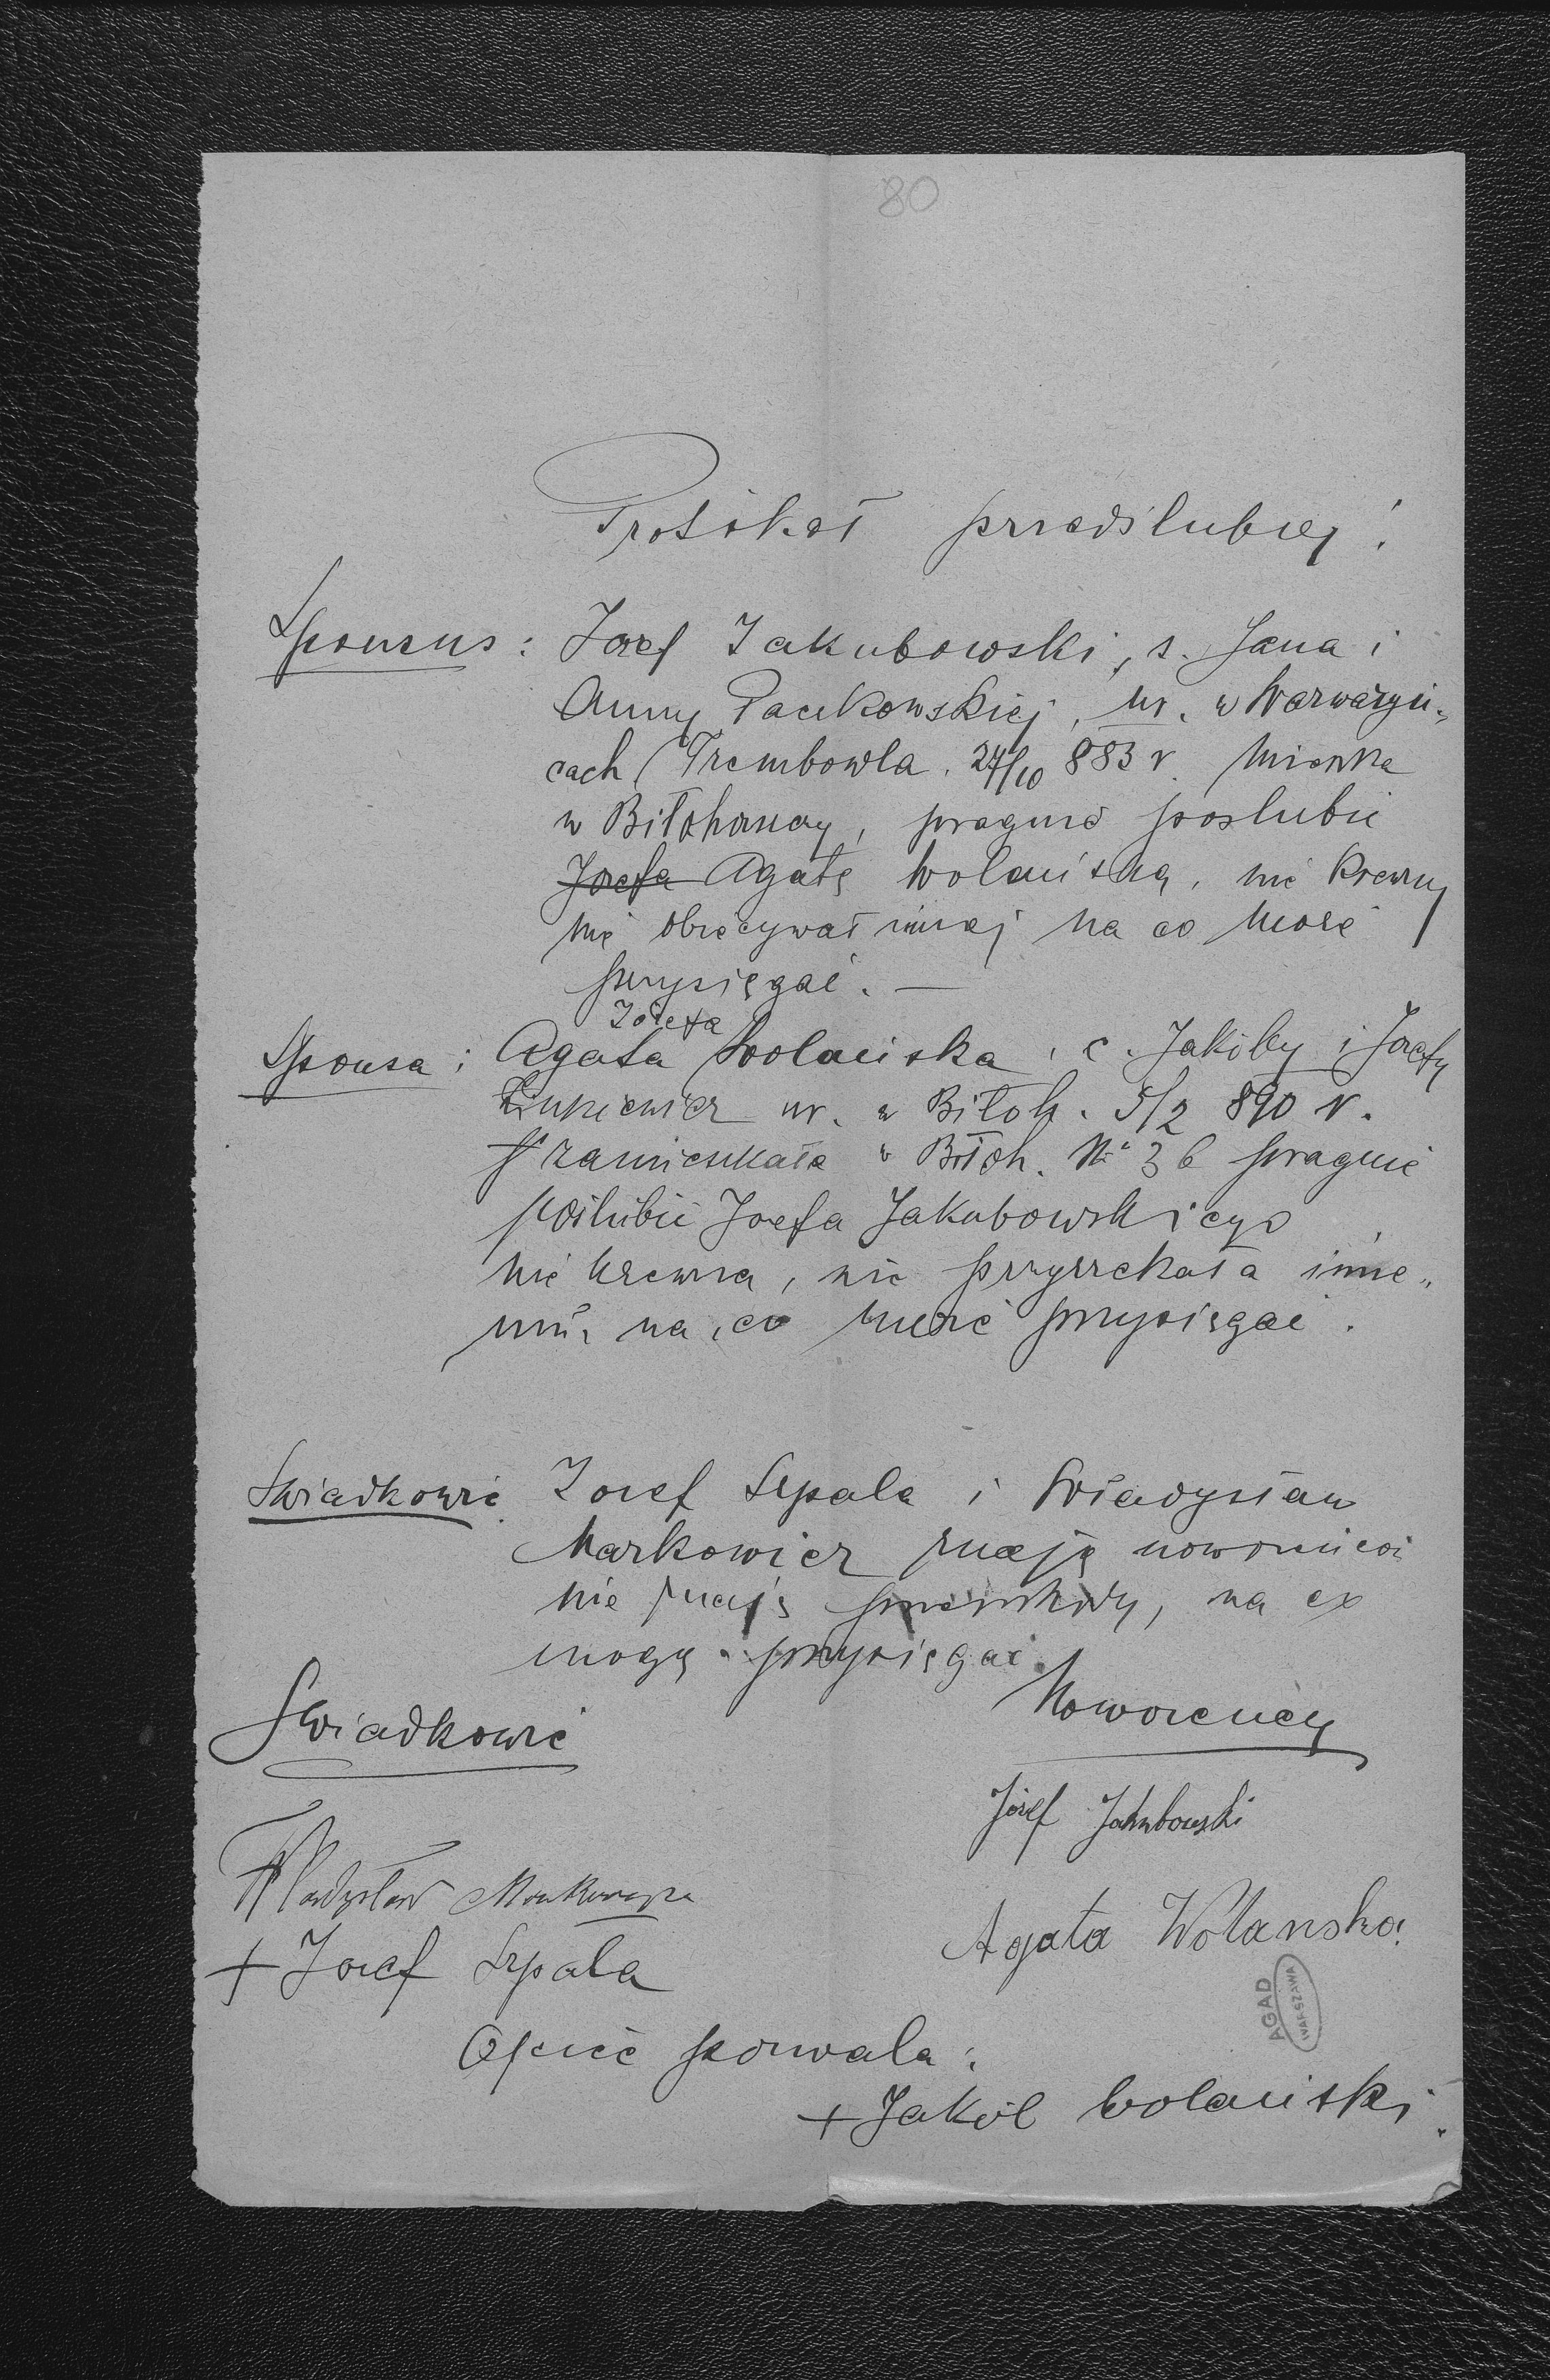 80
Protokół przedślubny!
Sponsus: Józef Jakubowski, s. Jana i
Anny Paczkowskiej, ur. w Warwaryń-
cach (Trembowla. 24/10 883 r. mieszka
w Biłohanay, pragnie poślubić
Józefa Agatę Wolańską, nie krewny
nie obiecywał innej na co może
przysięgać. —
Józefa
Sponsa: Agata Wolańska, c. Jakóba i Józefy
ur. w Biłoh. 5/2 890 r.
zamieszkała w Biłoh. Nr 36 pragnie
poślubić Józefa Jakubowskiego
nie krewna, nie przyrzekała inne„
mu, na co może przysięgać.
Świadkowie Józef Szpala i Władysław
Markowicz znają nowożeńców
nie znają przeszkody, na co
mogą przysięgać.
Nowożeńcy
Świadkowie
Józef Jakubowski
Władysław
Agata Wolanska
+ Józef Szpala
AGAD
WARSZAWA
Ojciec pozwala:
+ Jakób Wolański.